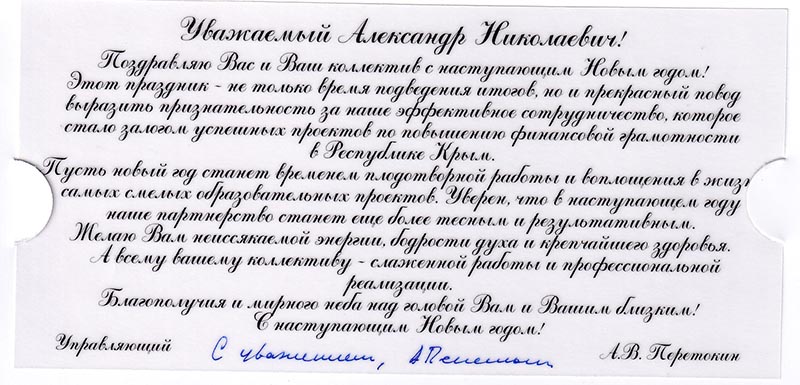 Уважаемый Александр Николаевич!
Поздравляю Вас и Ваш коллектив с наступающим Новым годом!
Этот праздник - не только время подведения итогов, но и прекрасный повод
выразить признательность за наше эффективное сотрудничество, которое
стало залогом успешных проектов по повышению финансовой грамотности
в Республике Крым.
Пусть новый год станет временем плодотворной работы и воплощения в жизнь
самых смелых образовательных проектов. Уверен, что в наступающем году
наше партнерство станет еще более тесным и результативным.
Желаю Вам неиссякаемой энергии, бодрости духа и крепчайшего здоровья.
А всему вашему коллективу - слаженной работы и профессиональной
реализации.
Благополучия и мирного неба над головой Вам и Вашим близким!
С наступающим Новым годом!
Управляющий С уважением, А.В. Перетокин